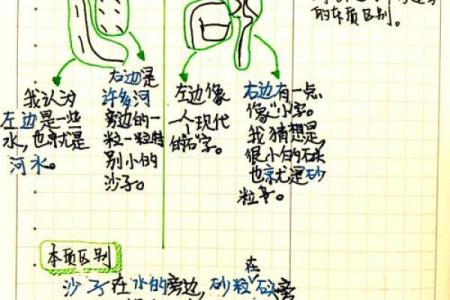 的本质区别。
我认为
左边是一些
水，也就是
河水。
右边是
许多河
旁边的一
粒一粒特
别小的
沙子。
左边像
一个现代
的石字。
右边有一点
像“小”字。
我猜想是，
很小的石头
也就是砂
粒等。
本质区别
沙子在水的旁边，砂粒在石旁